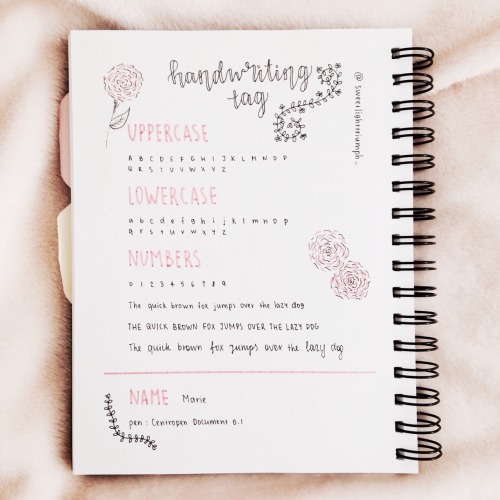 handwriting
tag
@sweetlighttriumph_
UPPERCASE
A B C D E F G H I J K L M N O P
Q R S T U V W X Y Z
LOWERCASE
a b c d e f g h i j k l m n o p
q r s t u v w x y z
NUMBERS
0 1 2 3 4 5 6 7 8 9
The quick brown fox jumps over the lazy dog
THE QUICK BROWN FOX JUMPS OVER THE LAZY DOG
The quick brown fox jumps over the lazy dog
NAME Marie
pen : Centropen Document 0.1